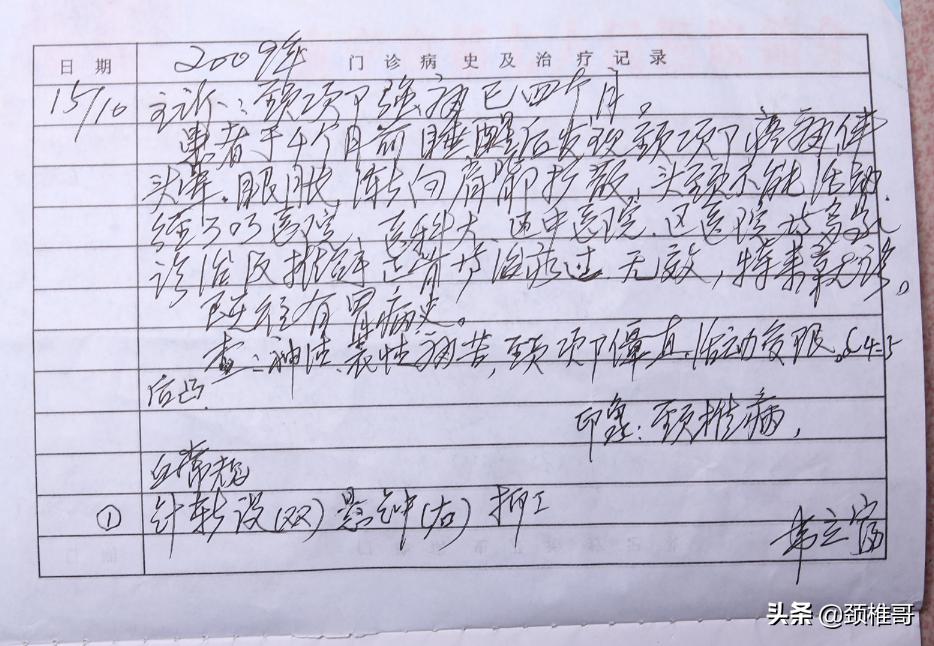 2009年
日期 门诊病史及治疗记录
15/10 主诉：颈项强痛已四个月。
患者于4个月前睡醒后发现颈项疼痛伴
头晕.眼胀,向肩部扩散,头颈不能活动.
经303医院,医科大.中医院.区医院
诊治及推拿正骨均治疗过无效,特来就诊。
既往有胃病史。
查：神清.表情痛苦,颈项僵直.活动受限。C4-5
后凸.
印象：颈椎病,
① 针 (双) 悬钟(右)
韦立富
头条 @颈椎哥